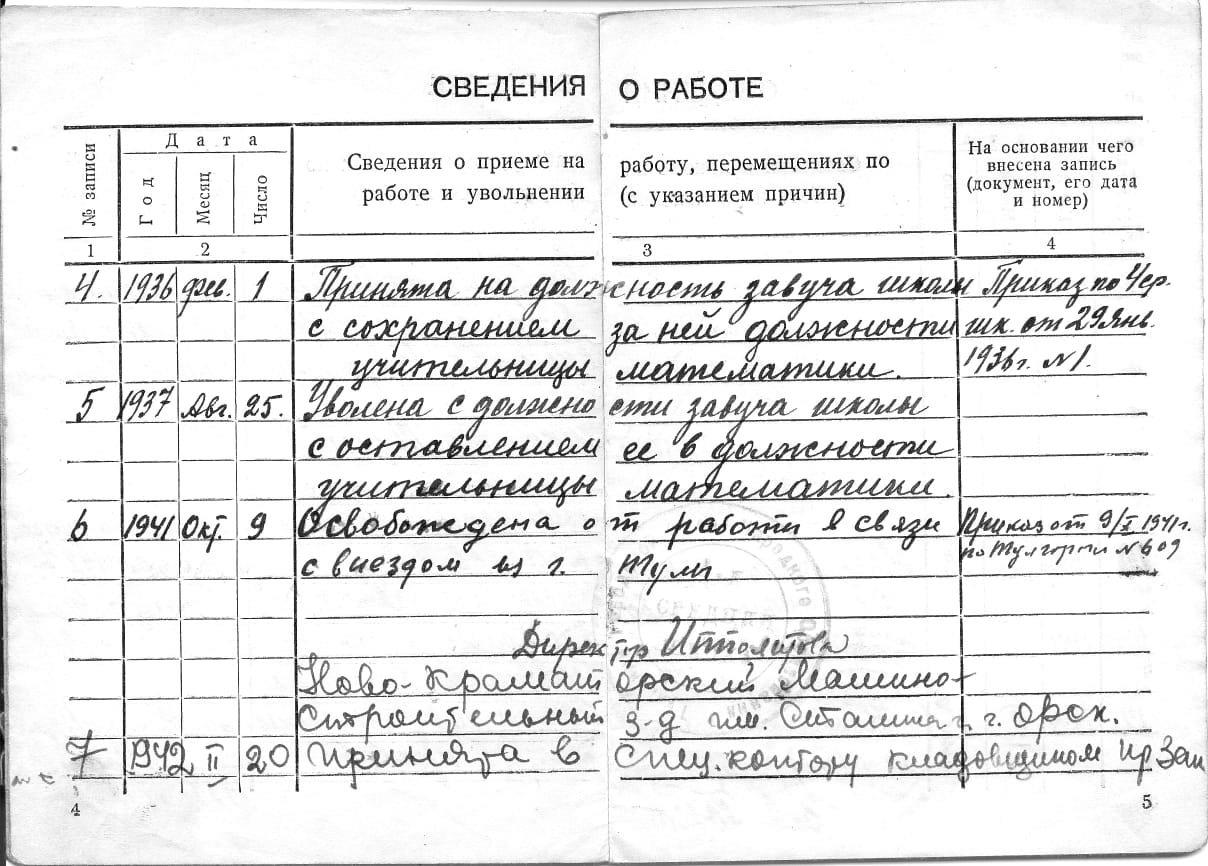 СВЕДЕНИЯ О РАБОТЕ
№ записи
Дата
Год
Месяц
Число
Сведения о приеме на работу, перемещениях по
работе и увольнении (с указанием причин)
На основании чего
внесена запись
(документ, его дата
и номер)
1 2 3 4
4. 1936 фев. 1 Принята на должность завуча школы Приказ по Чер.
с сохранением за ней должности шк. от 29 Янв.
учительницы математики. 1936г. N1.
5 1937 Авг. 25. Уволена с должности завуча школы
с оставлением ее в должности
учительницы математики.
6 1941 Окт. 9 Освобождена от работы в связи Приказ от 9/X 1941г.
с выездом из г. Тулы по N 609
Директор Ипполитова
Ново-Краматорский Машино-
Строительный з-д им. Сталина г. Орск.
7 1942 II 20 Принята в Спец. контору кладовщиком Пр
4
5